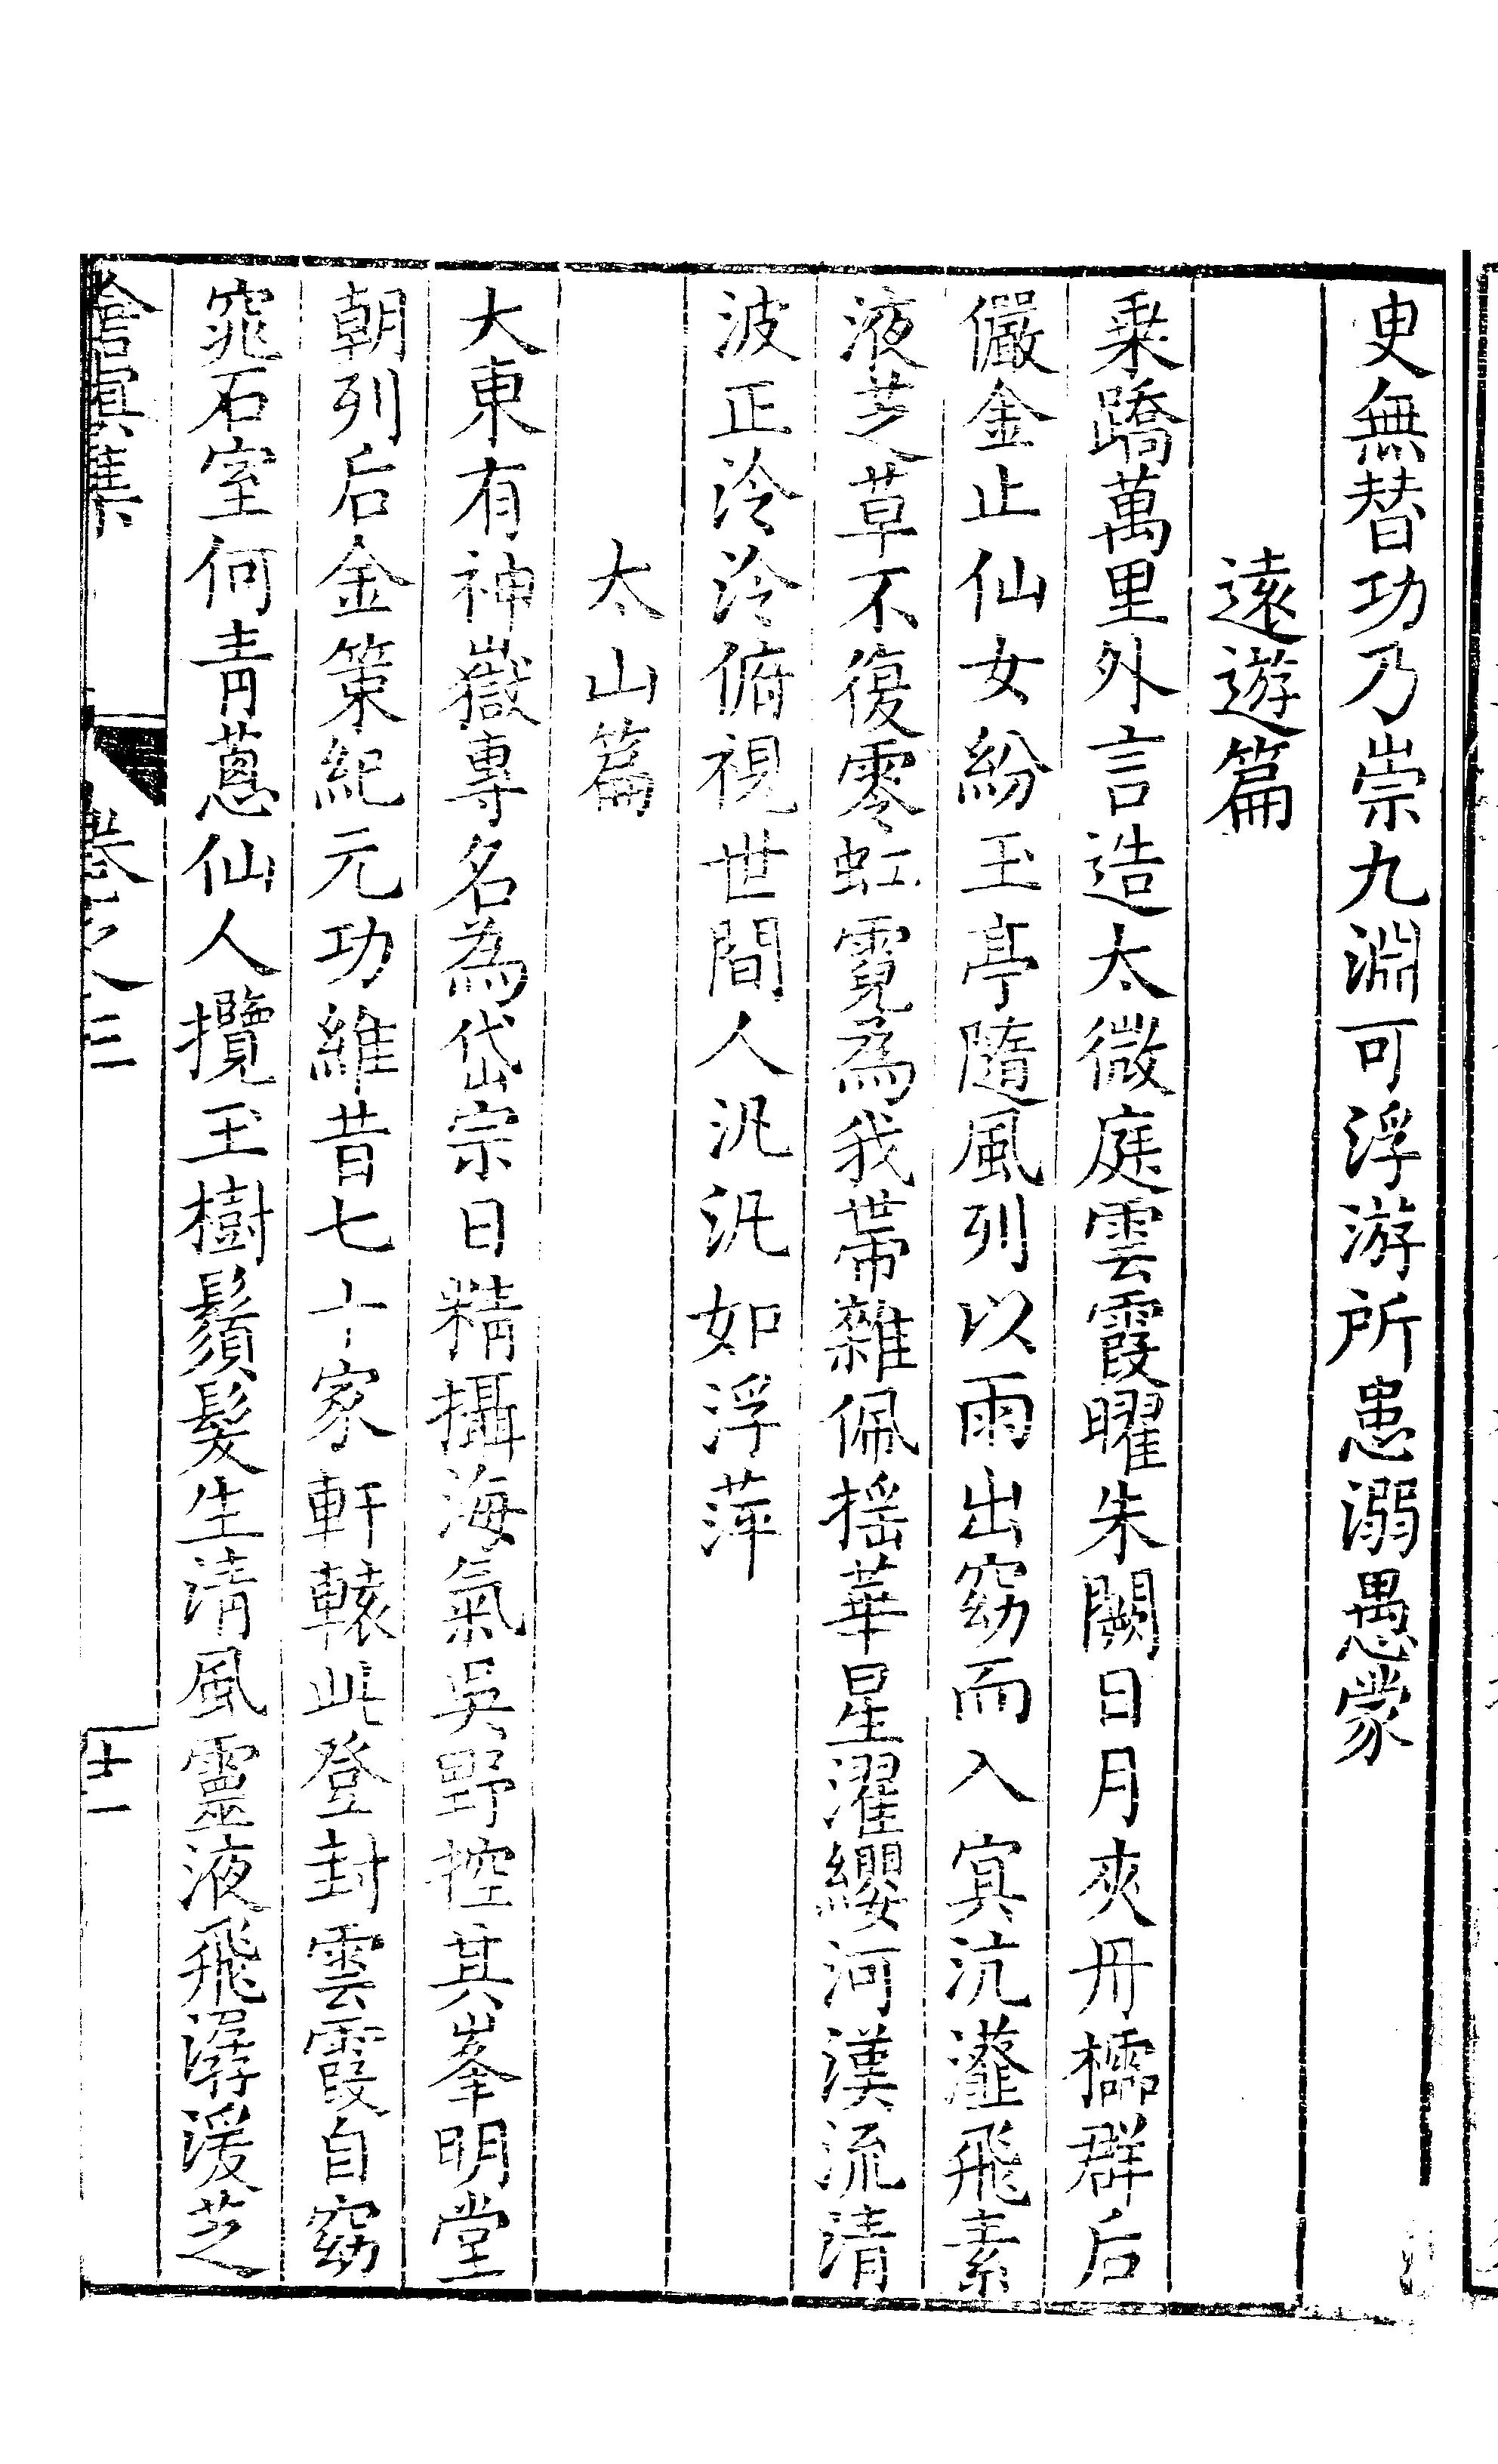 史無替功乃崇九淵可浮游所患溺愚蒙
遠遊篇
乗蹻萬里外言造太微庭雲霞曜朱闕日月夾丹櫺群后
儼金止仙女紛玉亭隨風列以雨出窈而入寘沆瀣飛素
液芝草不復零虹霓為我帶雜佩揺華星濯纓河漢流清
波正泠泠俯視世間人汎汎如浮萍
太山篇
大東有神嶽專名為岱宗日精攝海氣吳野控其峯明堂
朝列后金策紀元功維昔七十家軒轅此登封雲霞自窈
窕石室何青蔥仙人攬玉樹鬚髮生清風靈液飛潺湲芝
卷之三
十一